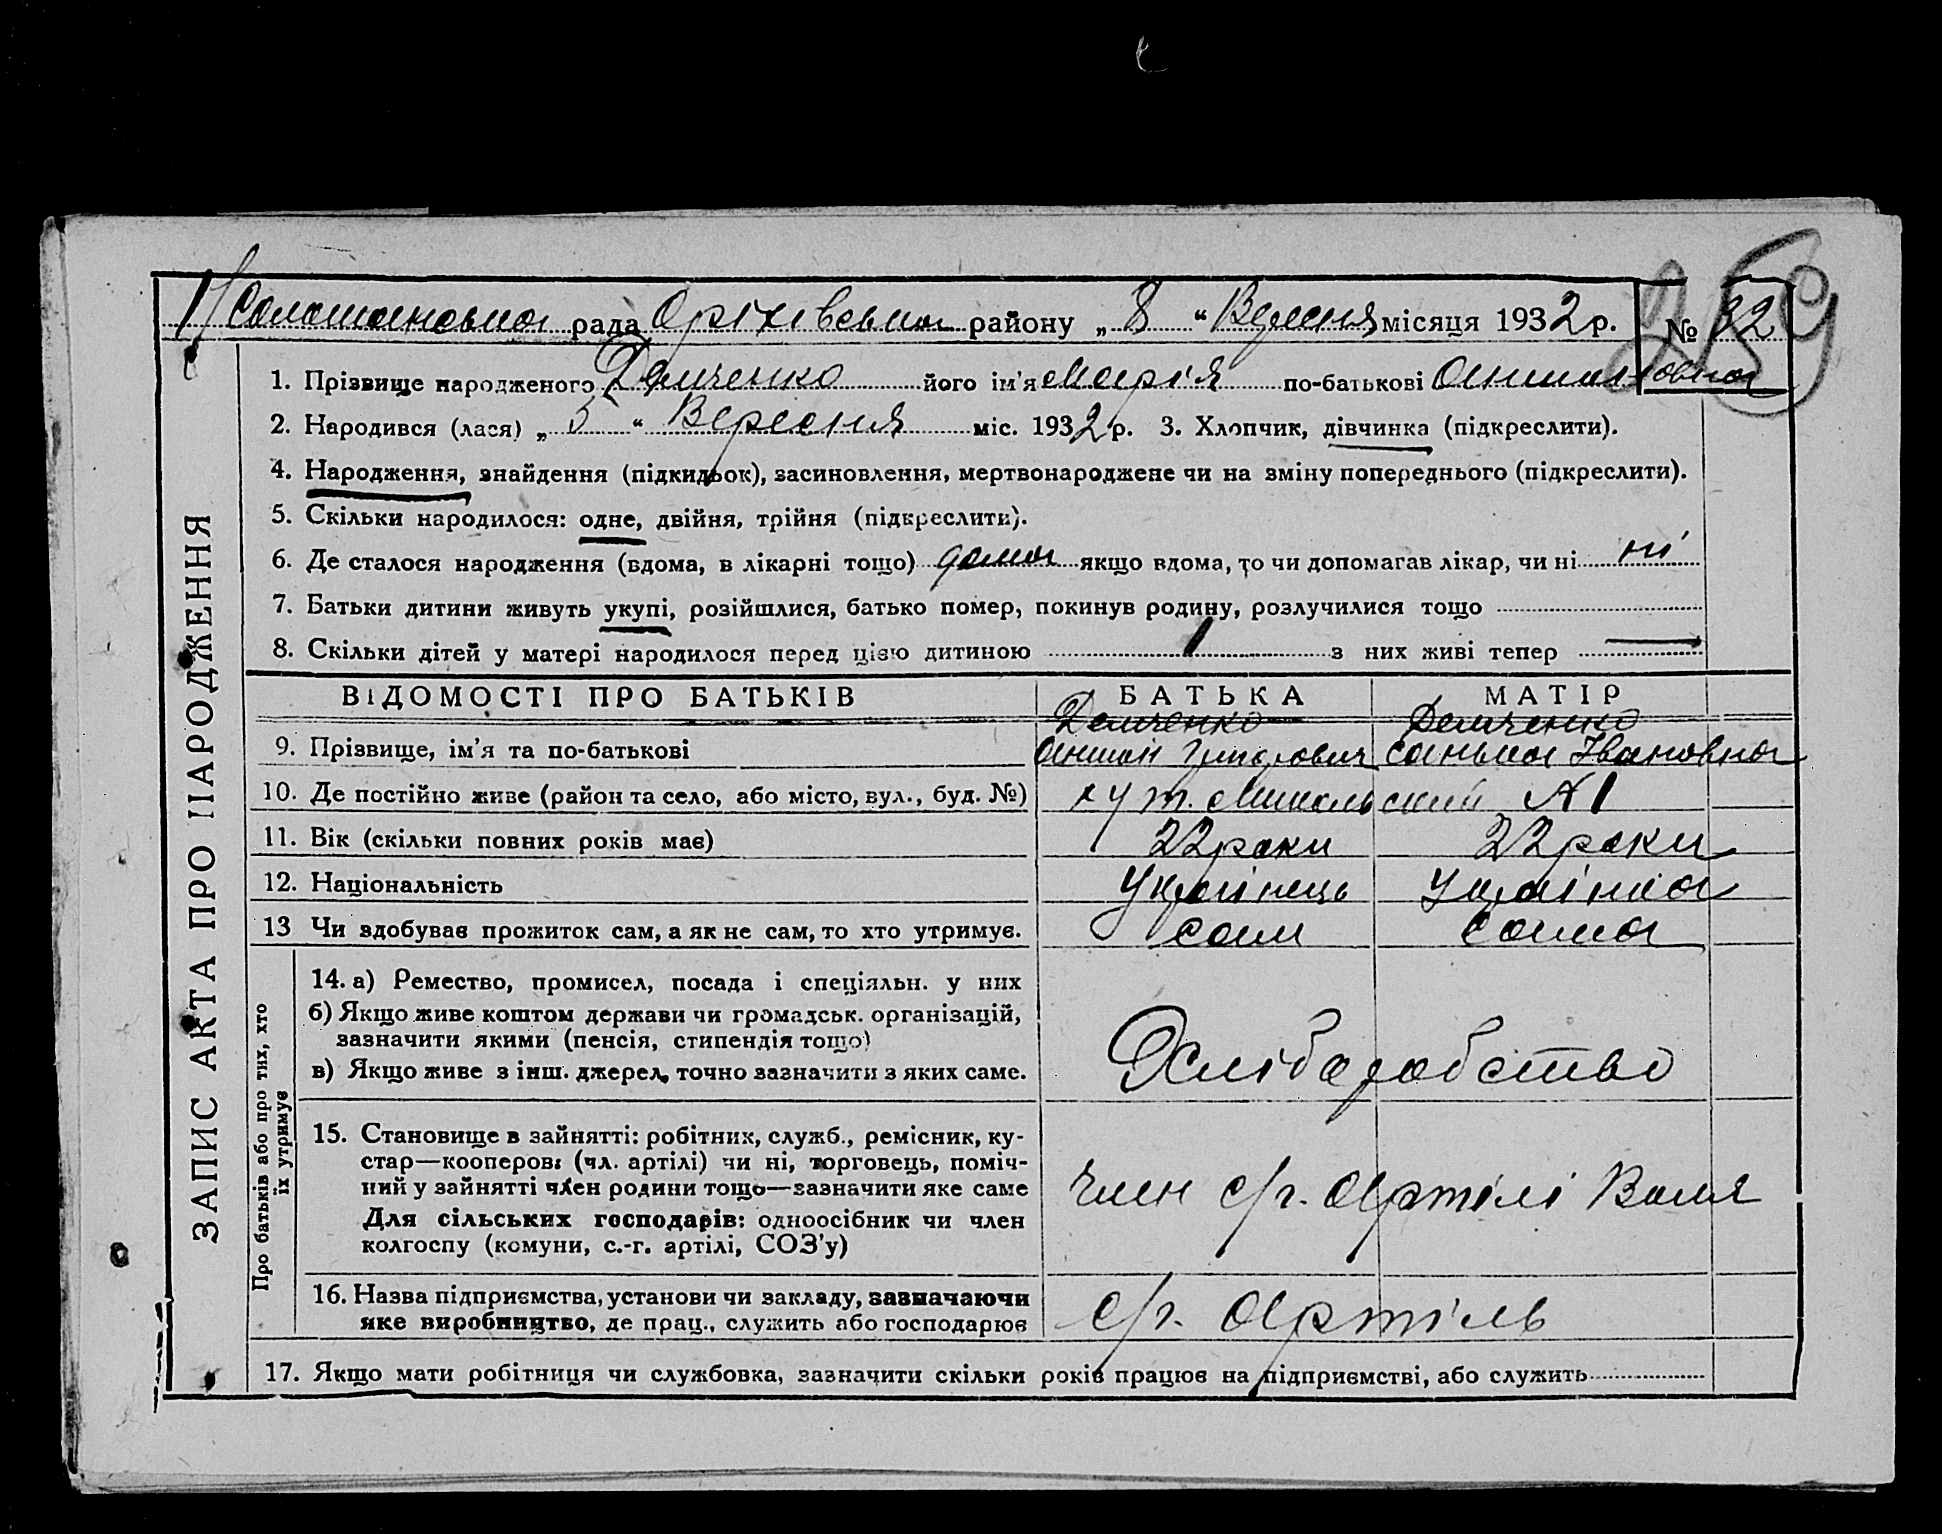 рада Оріхівська району „ 8 “ Вересня місяця 1932 р. № 32
259
1. Прізвище народженого Демченко його ім'я Марія по-батькові
2. Народився (лася) „ 5 “ Вересня міс. 1932 р. 3. Хлопчик, дівчинка (підкреслити).
4. Народження, знайдення (підкидьок), засиновлення, мертвонароджене чи на зміну попереднього (підкреслити).
5. Скільки народилося: одне, двійня, трійня (підкреслити).
6. Де сталося народження (вдома, в лікарні тощо) дома якщо вдома, то чи допомагав лікар, чи ні ні
7. Батьки дитини живуть укупі, розійшлися, батько помер, покинув родину, розлучилися тощо
8. Скільки дітей у матері народилося перед цією дитиною 1 з них живі тепер —
ЗАПИС АКТА ПРО НАРОДЖЕННЯ
ВІДОМОСТІ ПРО БАТЬКІВ БАТЬКА МАТІР
Демченко Демченко
9. Прізвище, ім'я та по-батькові Григрович Ивановна
10. Де постійно живе (район та село, або місто, вул., буд. №) хут. № 1
11. Вік (скільки повних років має) 22 роки 22 роки
12. Національність Українець Українка
13 Чи здобуває прожиток сам, а як не сам, то хто утримує. сам сама
Про батьків або про тих, хто
їх утримує
14. а) Ремество, промисел, посада і спеціяльн. у них
б) Якщо живе коштом держави чи громадськ. організацій,
зазначити якими (пенсія, стипендія тощо)
в) Якщо живе з інш. джерел, точно зазначити з яких саме.
Хліборобство
15. Становище в зайнятті: робітник, служб., ремісник, ку-
стар—кооперов. (чл. артілі) чи ні, торговець, поміч-
ний у зайнятті член родини тощо—зазначити яке саме
Для сільських господарів: одноосібник чи член
колгоспу (комуни, с.-г. артілі, СОЗ'у)
член с/г. Артілі Воля
16. Назва підприємства, установи чи закладу, зазначаючи
яке виробництво, де прац., служить або господарює
с/г. Артіль
17. Якщо мати робітниця чи службовка, зазначити скільки років працює на підприємстві, або служить